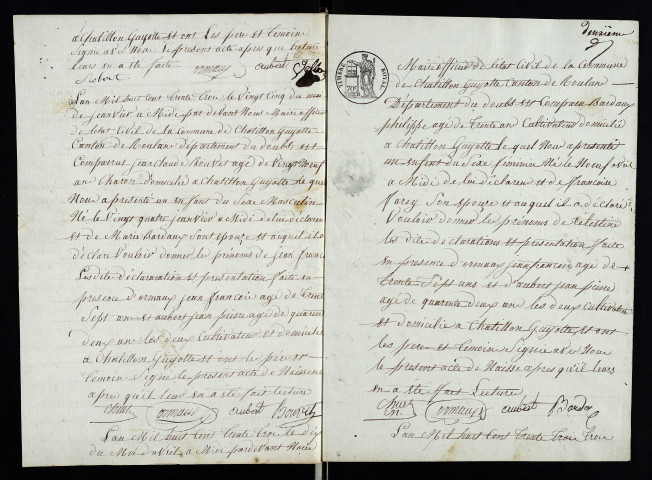 a Chatillon Guyotte et ont Les pere et temoine
signe avec Nous Le present acte apres que lecture
leurs en a ete faite ormaux aubert
Robert
L'an Mil huit Cent trente trois le vingt Cinq du mois
de janvier a Midi par devant Nous Maire officier
de letat Civil de la Commune de Chatillon Guyotte
Canton de Roulans departement du doubs est
Comparus jean Claude Bouvet age de vingt Neuf
an Charon Domicilie a Chatillon Guyotte le quel
Nous a presente un enfant du sexe Masculin
Ne le vingt quatre janvier a Midi de lui declarent
et de Marie Bardaux sont epouze et auquel il a
declare vouloir donner le prenoms de jean francois
Les dite declaration et presentation faite en
presence d'ormaux jean francois age de trente
sept an et aubert jean pierre age de quarente
deux an les deux Cultivateur et domicilie
a Chatillon Guyotte et ont le pere et
temoin signe le present acte de Naissence
apre qu'il leurs en a ete fait lecture
ormaux aubert Bouvet
L'an Mil huit Cent trente trois le dix
du Moi d'avril a Midi par devant Nous
deuxieme
TIMBRE ROYAL
Maire officier de letat Civil de la Commune
de Chatillon Guyotte Canton de Roulans
Departement du doubs est Comparu Bardaux
philippe age de trente an Cultivateur domicilie
a Chatillon Guyotte le quel Nous a presente
un enfant du sexe feminin Ne le Neuf avril
a Midi de lui declarent et de francoise
Varey son epouze et auquel il a declare
Vouloir donner les prenoms de Celestine
les dite declarations et presentation faite
en presence d'ormaux jean francois age de
trente sept ans et d'aubert jean pierre
age de quarente deux an les deux Cultivateur
et domicilie a Chatillon Guyotte et ont
les pere et temoin signe avec Nous
le present acte de Naisse apres qu'il leurs
en a ete fait Lecture
ormaux aubert Bardaux
L'an Mil huit Cent trente trois